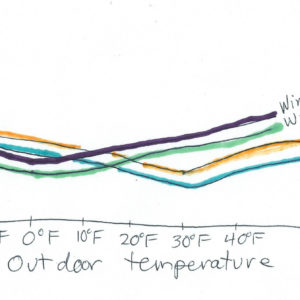 Win
W
F 0°F 10°F 20°F 30°F 40°F
Outdoor temperature